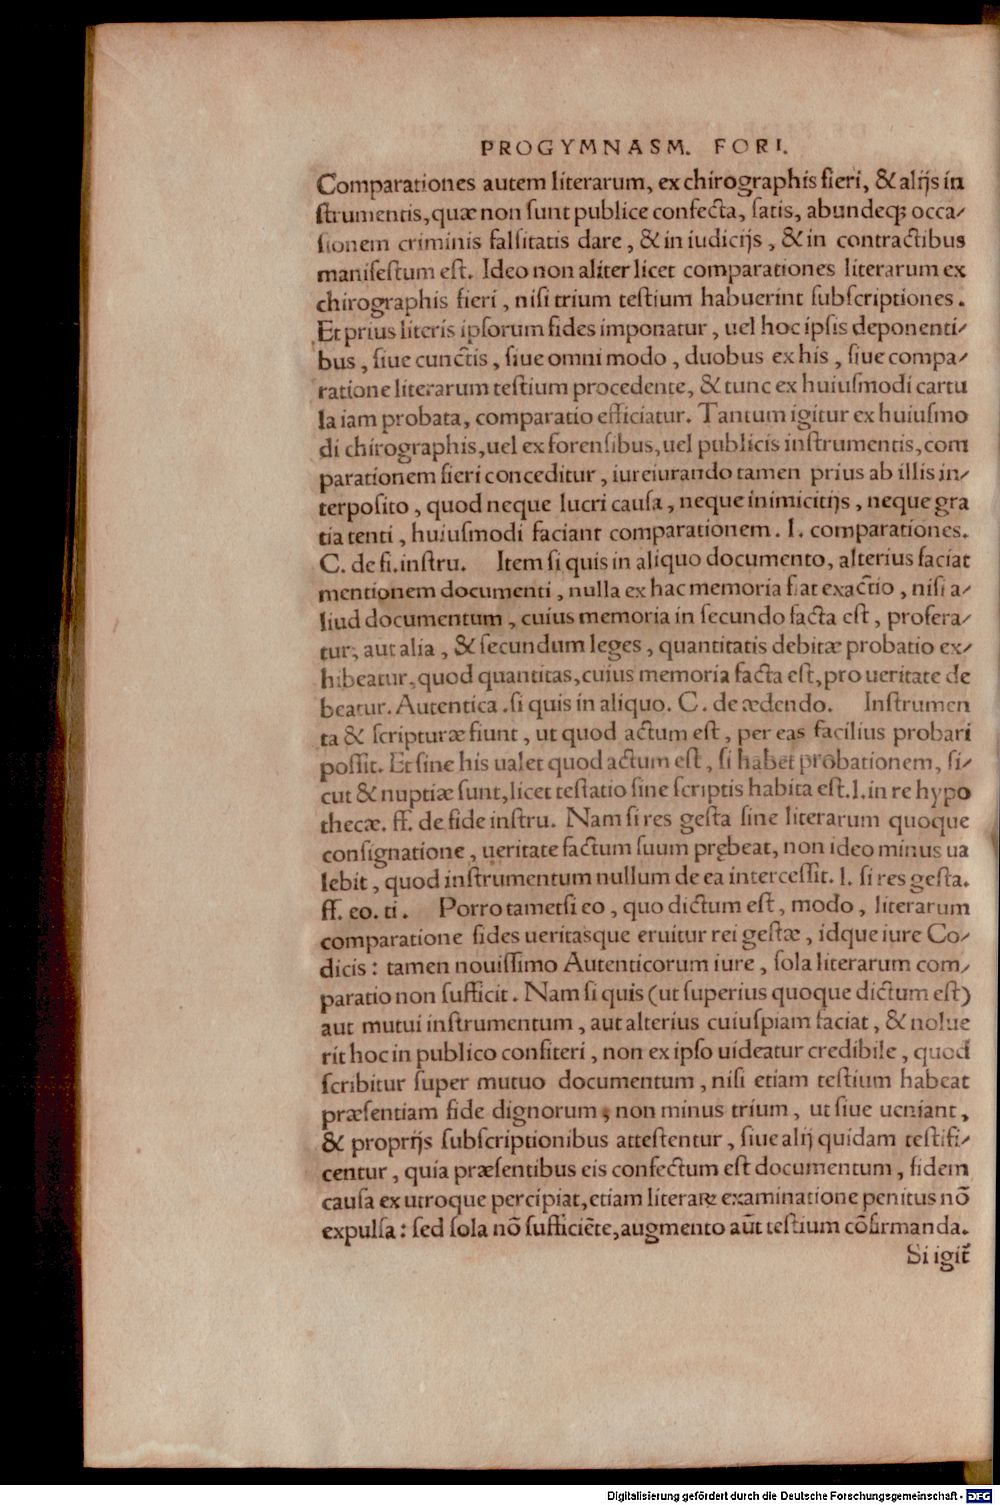 PROGYMNASM. FORI.
Comparationes autem literarum, ex chirographis fieri, & alijs in
ſtrumentis, quæ non ſunt publice confecta, ſatis, abundeq; occa⸗
ſionem criminis falſitatis dare, & in iudicijs, & in contractibus
manifeſtum eſt. Ideo non aliter licet comparationes literarum ex
chirographis fieri, niſi trium teſtium habuerint ſubſcriptiones.
Et prius literis ipſorum fides imponatur, uel hoc ipſis deponenti⸗
bus, ſiue cunctis, ſiue omni modo, duobus ex his, ſiue compa⸗
ratione literarum teſtium procedente, & tunc ex huiuſmodi cartu
la iam probata, comparatio efficiatur. Tantum igitur ex huiuſmo
di chirographis, uel ex forenſibus, uel publicis inſtrumentis, com
parationem fieri conceditur, iureiurando tamen prius ab illis in⸗
terpoſito, quod neque lucri cauſa, neque inimicitijs, neque gra
tia tenti, huiuſmodi faciant comparationem. l. comparationes.
C. de fi. inſtru. Item ſi quis in aliquo documento, alterius faciat
mentionem documenti, nulla ex hac memoria fiat exactio, niſi a⸗
liud documentum, cuius memoria in ſecundo facta eſt, profera⸗
tur, aut alia, & ſecundum leges, quantitatis debitæ probatio ex⸗
hibeatur, quod quantitas, cuius memoria facta eſt, pro ueritate de
beatur. Autentica. ſi quis in aliquo. C. de ædendo. Inſtrumen
ta & ſcripturæ fiunt, ut quod actum eſt, per eas facilius probari
poſſit. Et ſine his ualet quod actum eſt, ſi habet probationem, ſi⸗
cut & nuptiæ ſunt, licet teſtatio ſine ſcriptis habita eſt. l. in re hypo
thecæ. ff. de fide inſtru. Nam ſi res geſta ſine literarum quoque
conſignatione, ueritate factum ſuum prębeat, non ideo minus ua
lebit, quod inſtrumentum nullum de ea interceſſit. l. ſi res geſta.
ff. eo. ti. Porro tametſi eo, quo dictum eſt, modo, literarum
comparatione fides ueritasque eruitur rei geſtæ, idque iure Co⸗
dicis: tamen nouiſſimo Autenticorum iure, ſola literarum com⸗
paratio non ſufficit. Nam ſi quis (ut ſuperius quoque dictum eſt)
aut mutui inſtrumentum, aut alterius cuiuſpiam faciat, & nolue
rit hoc in publico confiteri, non ex ipſo uideatur credibile, quod
ſcribitur ſuper mutuo documentum, niſi etiam teſtium habeat
præſentiam fide dignorum, non minus trium, ut ſiue ueniant,
& proprijs ſubſcriptionibus atteſtentur, ſiue alij quidam teſtifi⸗
centur, quia præſentibus eis confectum eſt documentum, fidem
cauſa ex utroque percipiat, etiam literaꝝ examinatione penitus nõ
expulſa: ſed ſola nõ ſufficiẽte, augmento aũt teſtium cõfirmanda.
Si igit̃
Digitalisierung gefördert durch die Deutsche Forschungsgemeinschaft - DFG